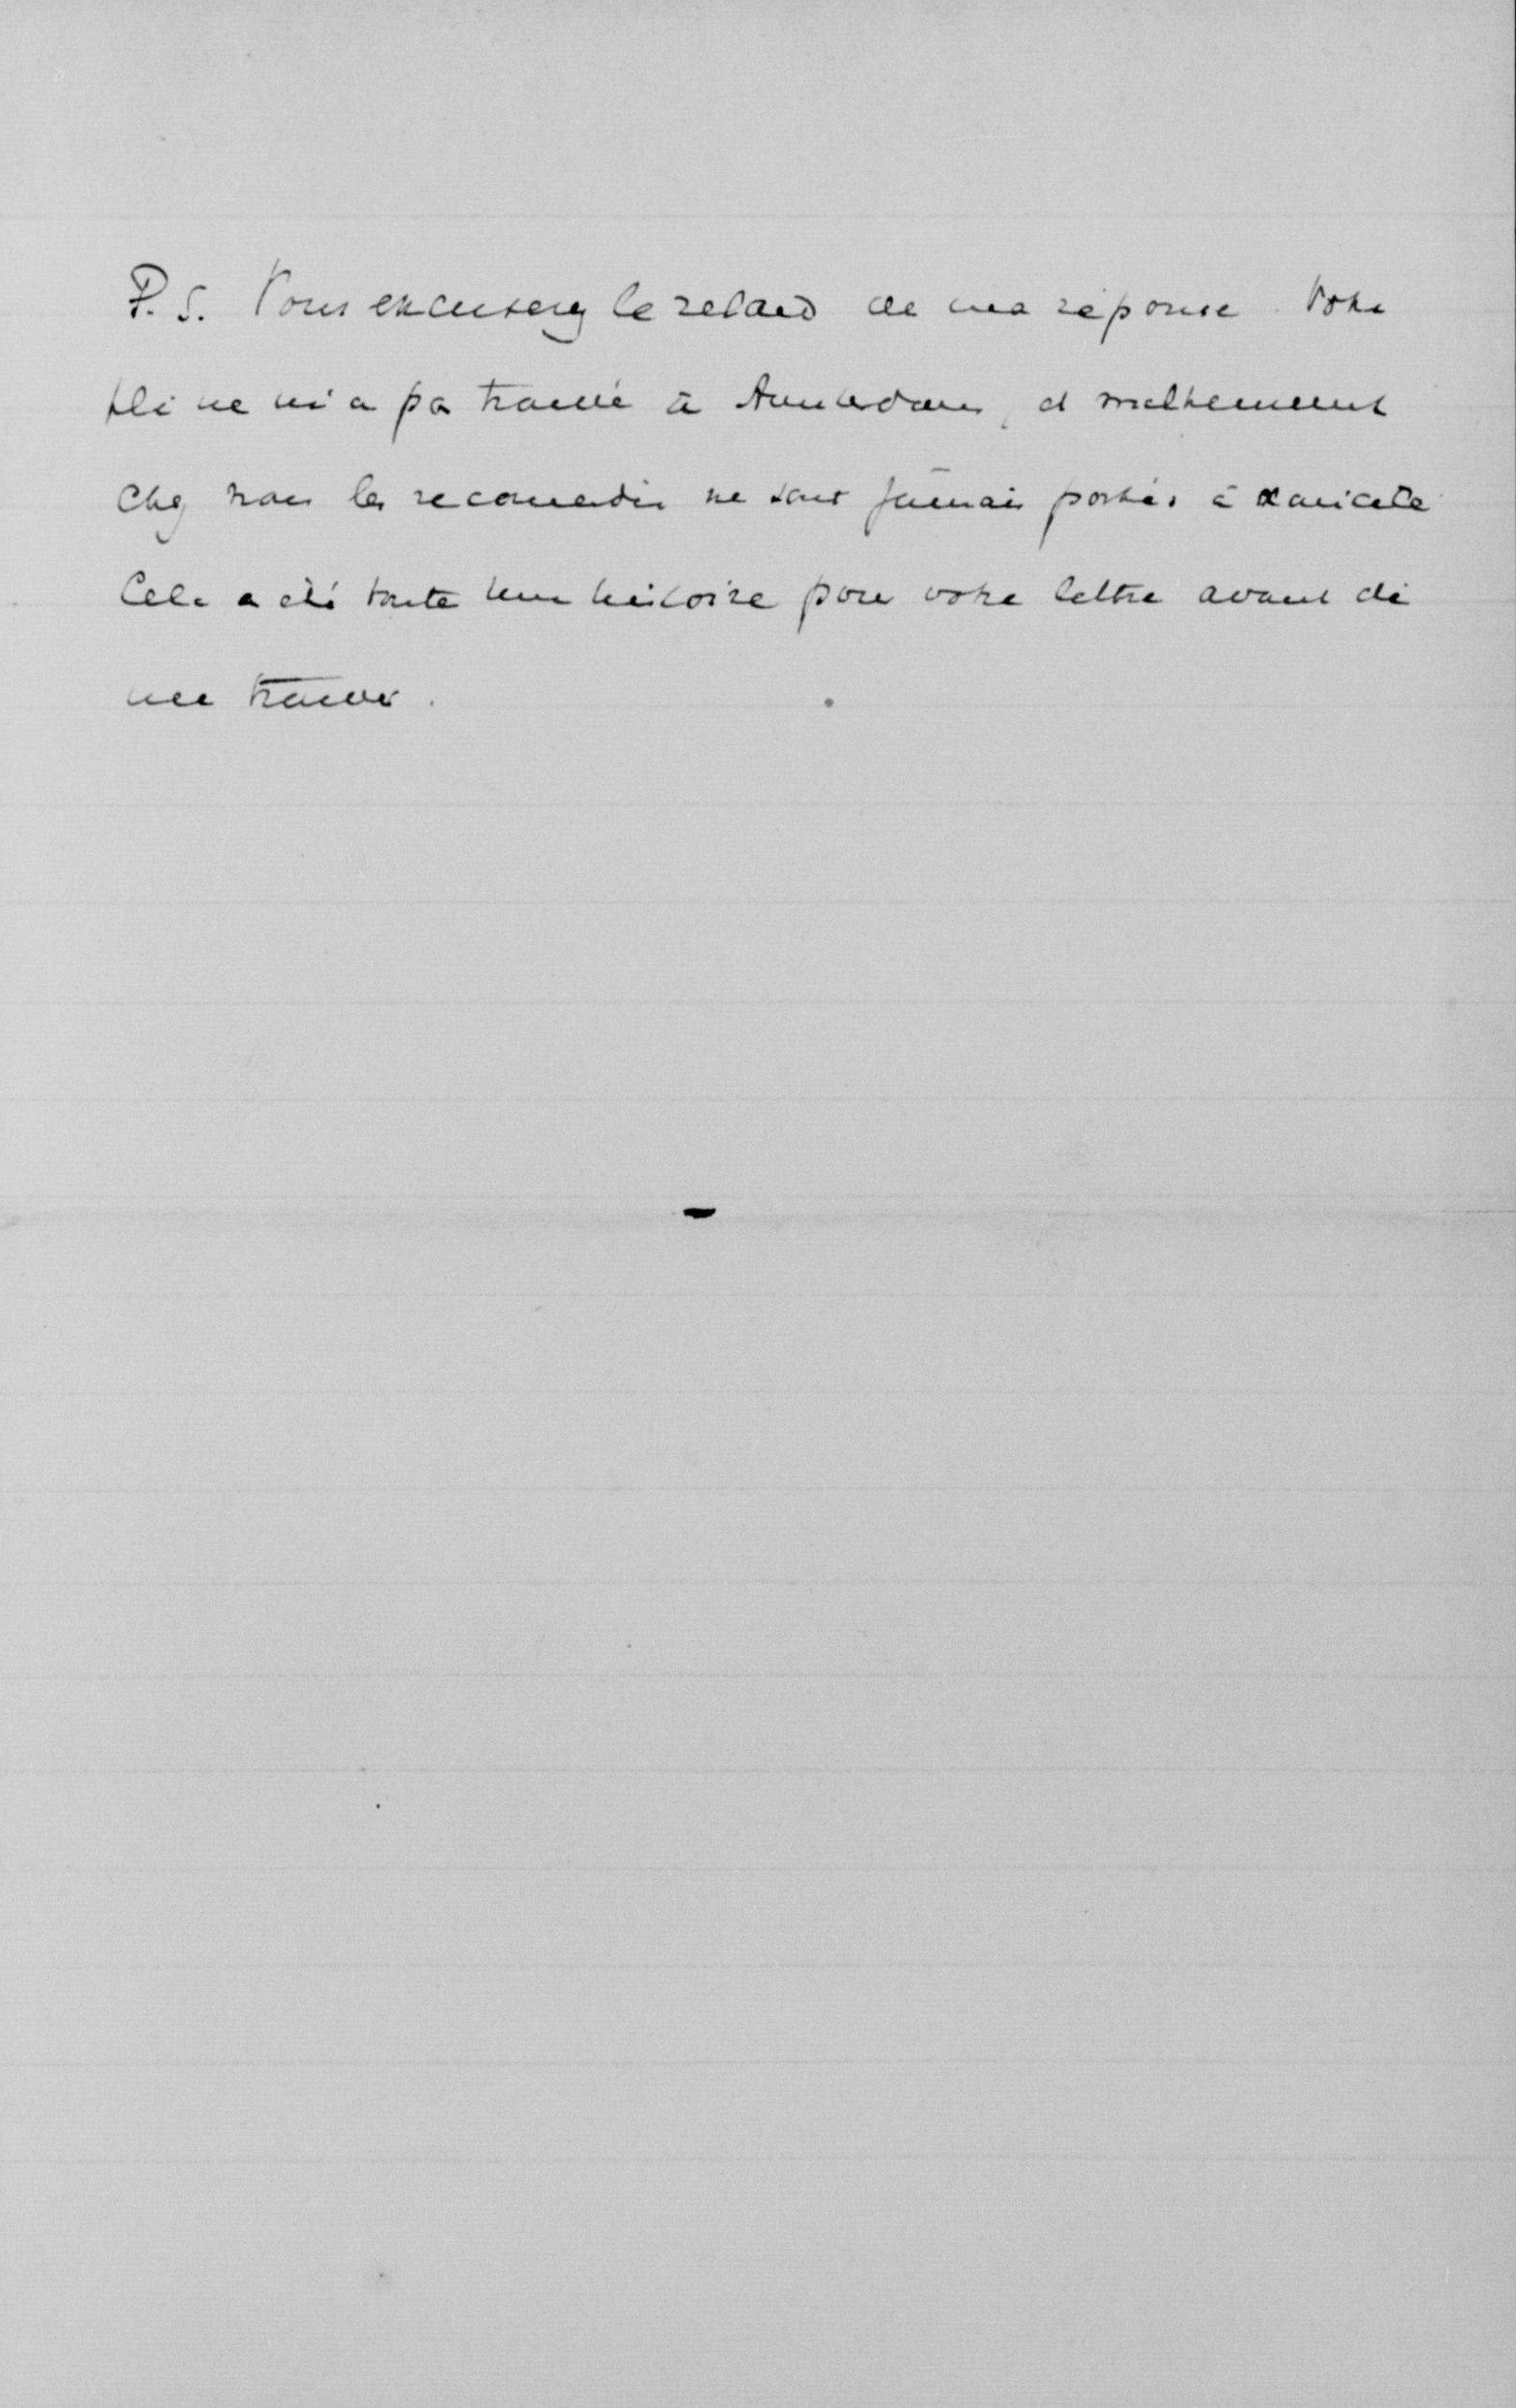 P.S. Vous excuserez le retard de ma réponse. Votre
pli ne m'a pas trouvé à Amsterdam, et malheureusement
chez nous les recommandés ne sont jamais portés à domicile
Cela a été toute une histoire pour votre lettre avant de
me trouver.